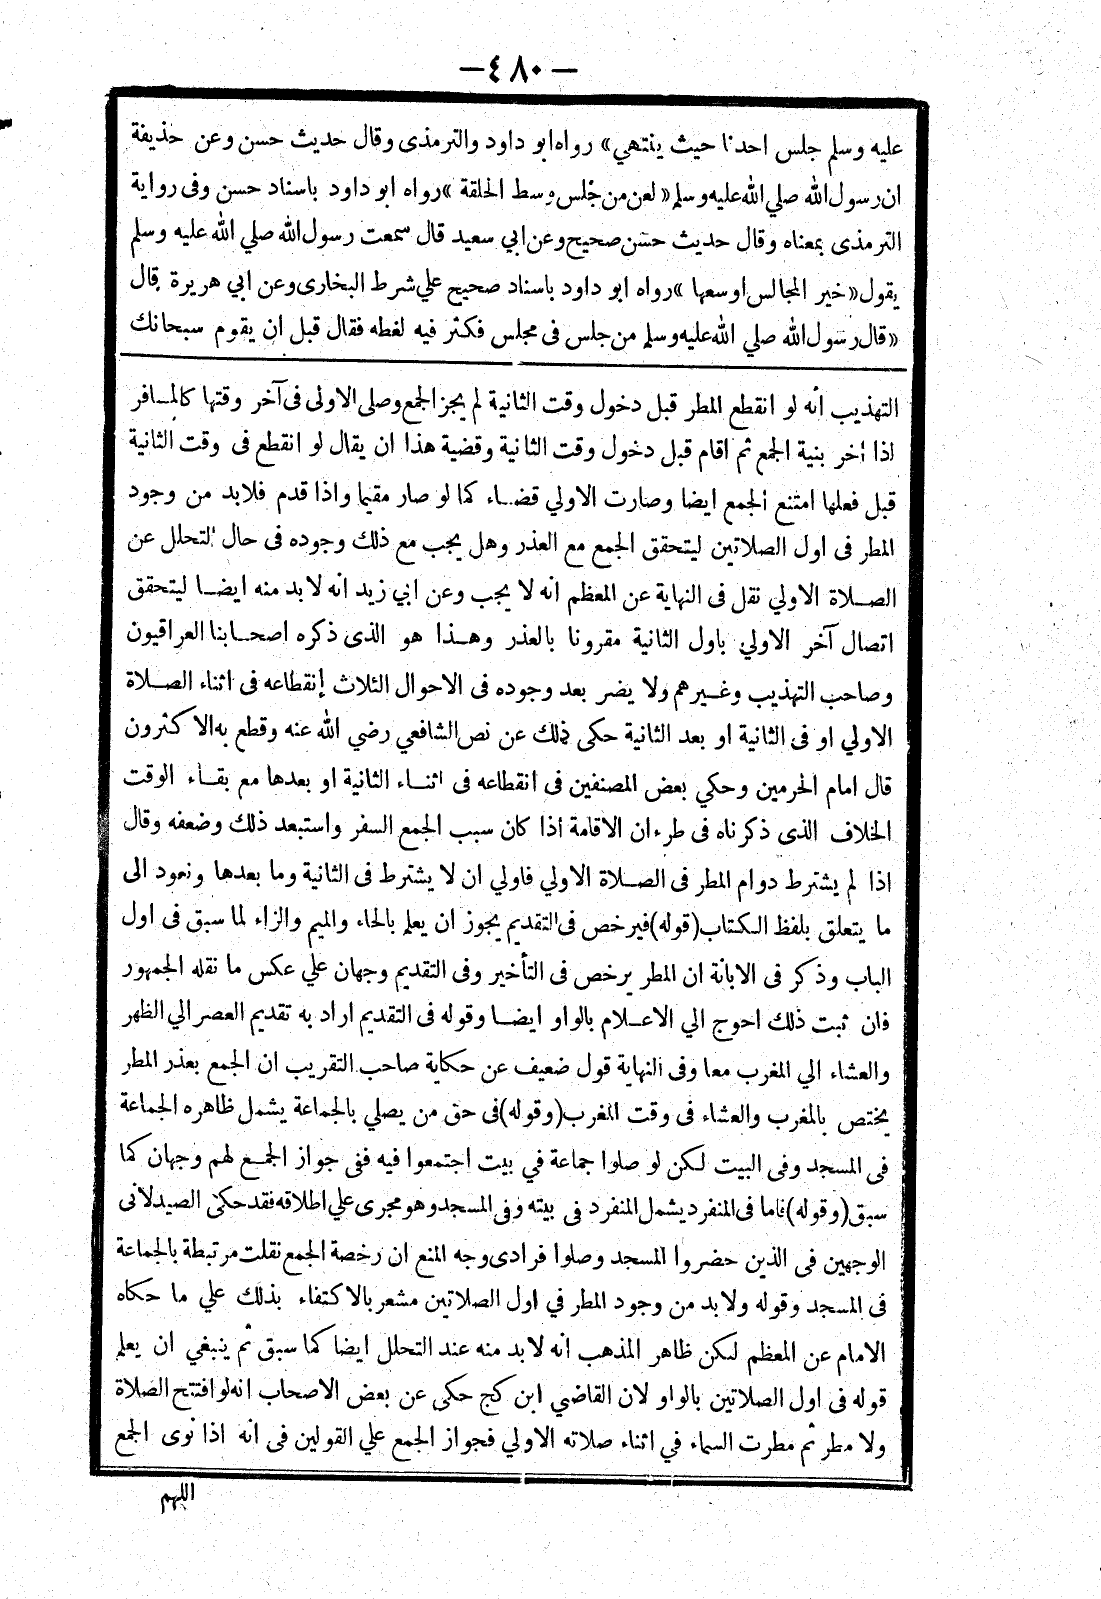 — ٤٨٠ —
عليه وسلم جلس احدنا حيث ينتهي» رواه ابو داود والترمذى وقال حديث حسن وعن حذيفة
ان رسول الله صلي الله عليه وسلم « لعن من جلس وسط الحلقة » رواه ابو داود باسناد حسن وفى رواية
الترمذى بمعناه وقال حديث حسن صحيح وعن ابي سعيد قال سمعت رسول الله صلي الله عليه وسلم
يقول « خير المجالس اوسعها » رواه ابو داود باسناد صحيح علي شرط البخارى وعن ابي هريرة قال
« قال رسول الله صلي الله عليه وسلم من جلس فى مجلس فكثر فيه لغطه فقال قبل ان يقوم سبحانك
التهذيب أنه لو انقطع المطر قبل دخول وقت الثانية لم يجز الجمع وصلى الاولى فى آخر وقتها كالمسافر
اذا أخر بنية الجمع ثم اقام قبل دخول وقت الثانية وقضية هذا ان يقال لو انقطع فى وقت الثانية
قبل فعلها امتنع الجمع ايضا وصارت الاولي قضاء كما لو صار مقيما واذا قدم فلابد من وجود
المطر فى اول الصلاتين ليتحقق الجمع مع العذر وهل يجب مع ذلك وجوده فى حال التحلل عن
الصلاة الاولي نقل فى النهاية عن المعظم انه لا يجب وعن ابي زيد انه لا بد منه ايضا ليتحقق
اتصال آخر الاولي باول الثانية مقرونا بالعذر وهذا هو الذى ذكره اصحابنا العراقيون
وصاحب التهذيب وغيرهم ولا يضر بعد وجوده فى الاحوال الثلاث إنقطاعه فى اثناء الصلاة
الاولي او فى الثانية او بعد الثانية حكى ذلك عن نص الشافعي رضي الله عنه وقطع به الاكثرون
قال امام الحرمين وحكي بعض المصنفين فى انقطاعه فى اثناء الثانية او بعدها مع بقاء الوقت
الخلاف الذى ذكرناه فى طرءان الاقامة اذا كان سبب الجمع السفر واستبعد ذلك وضعفه وقال
اذا لم يشترط دوام المطر فى الصلاة الاولي فاولي ان لا يشترط فى الثانية وما بعدها ونعود الى
ما يتعلق بلفظ الكتاب (قوله) فيرخص فى التقديم يجوز ان يعلم بالحاء والميم والزاء لما سبق فى اول
الباب وذكر فى الابانة ان المطر يرخص فى التأخير وفى التقديم وجهان علي عكس ما نقله الجمهور
فان ثبت ذلك احوج الي الاعلام بالواو ايضا وقوله فى التقديم اراد به تقديم العصر الي الظهر
والعشاء الي المغرب معا وفى النهاية قول ضعيف عن حكاية صاحب التقريب ان الجمع بعذر المطر
يختص بالمغرب والعشاء فى وقت المغرب (وقوله) فى حق من يصلي بالجماعة يشمل ظاهره الجماعة
فى المسجد وفى البيت لكن لو صلوا جماعة في بيت اجتمعوا فيه ففى جواز الجمع لهم وجهان كما
سبق (وقوله) فاما فى المنفرد يشمل المنفرد فى بيته وفى المسجد وهو مجرى علي اطلاقه فقد حكى الصيدلانى
الوجهين فى الذين حضروا المسجد وصلوا فرادى وجه المنع ان رخصة الجمع نقلت مرتبطة بالجماعة
فى المسجد وقوله ولا بد من وجود المطر في اول الصلاتين مشعر بالاكتفاء بذلك علي ما حكاه
الامام عن المعظم لكن ظاهر المذهب انه لا بد منه عند التحلل ايضا كما سبق ثم ينبغي ان يعلم
قوله فى اول الصلاتين بالواو لان القاضي ابن كج حكى عن بعض الاصحاب انه لو افتتح الصلاة
ولا مطر ثم مطرت السماء في اثناء صلاته الاولي فجواز الجمع علي القولين فى انه اذا نوى الجمع
اللهم